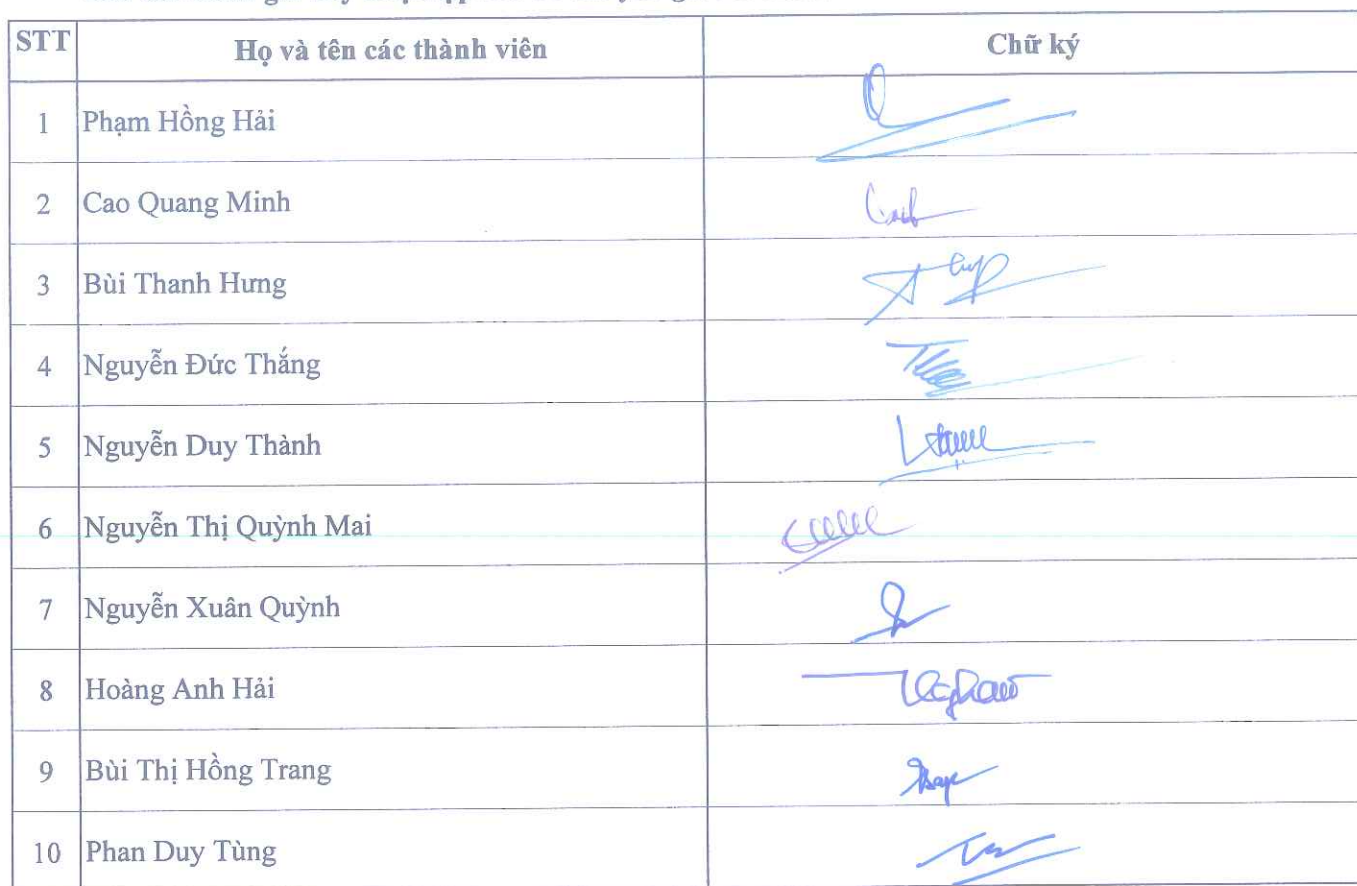 STT Họ và tên các thành viên Chữ ký
1 Phạm Hồng Hải
2 Cao Quang Minh
3 Bùi Thanh Hưng
4 Nguyễn Đức Thắng
5 Nguyễn Duy Thành
6 Nguyễn Thị Quỳnh Mai
7 Nguyễn Xuân Quỳnh
8 Hoàng Anh Hải
9 Bùi Thị Hồng Trang
10 Phan Duy Tùng